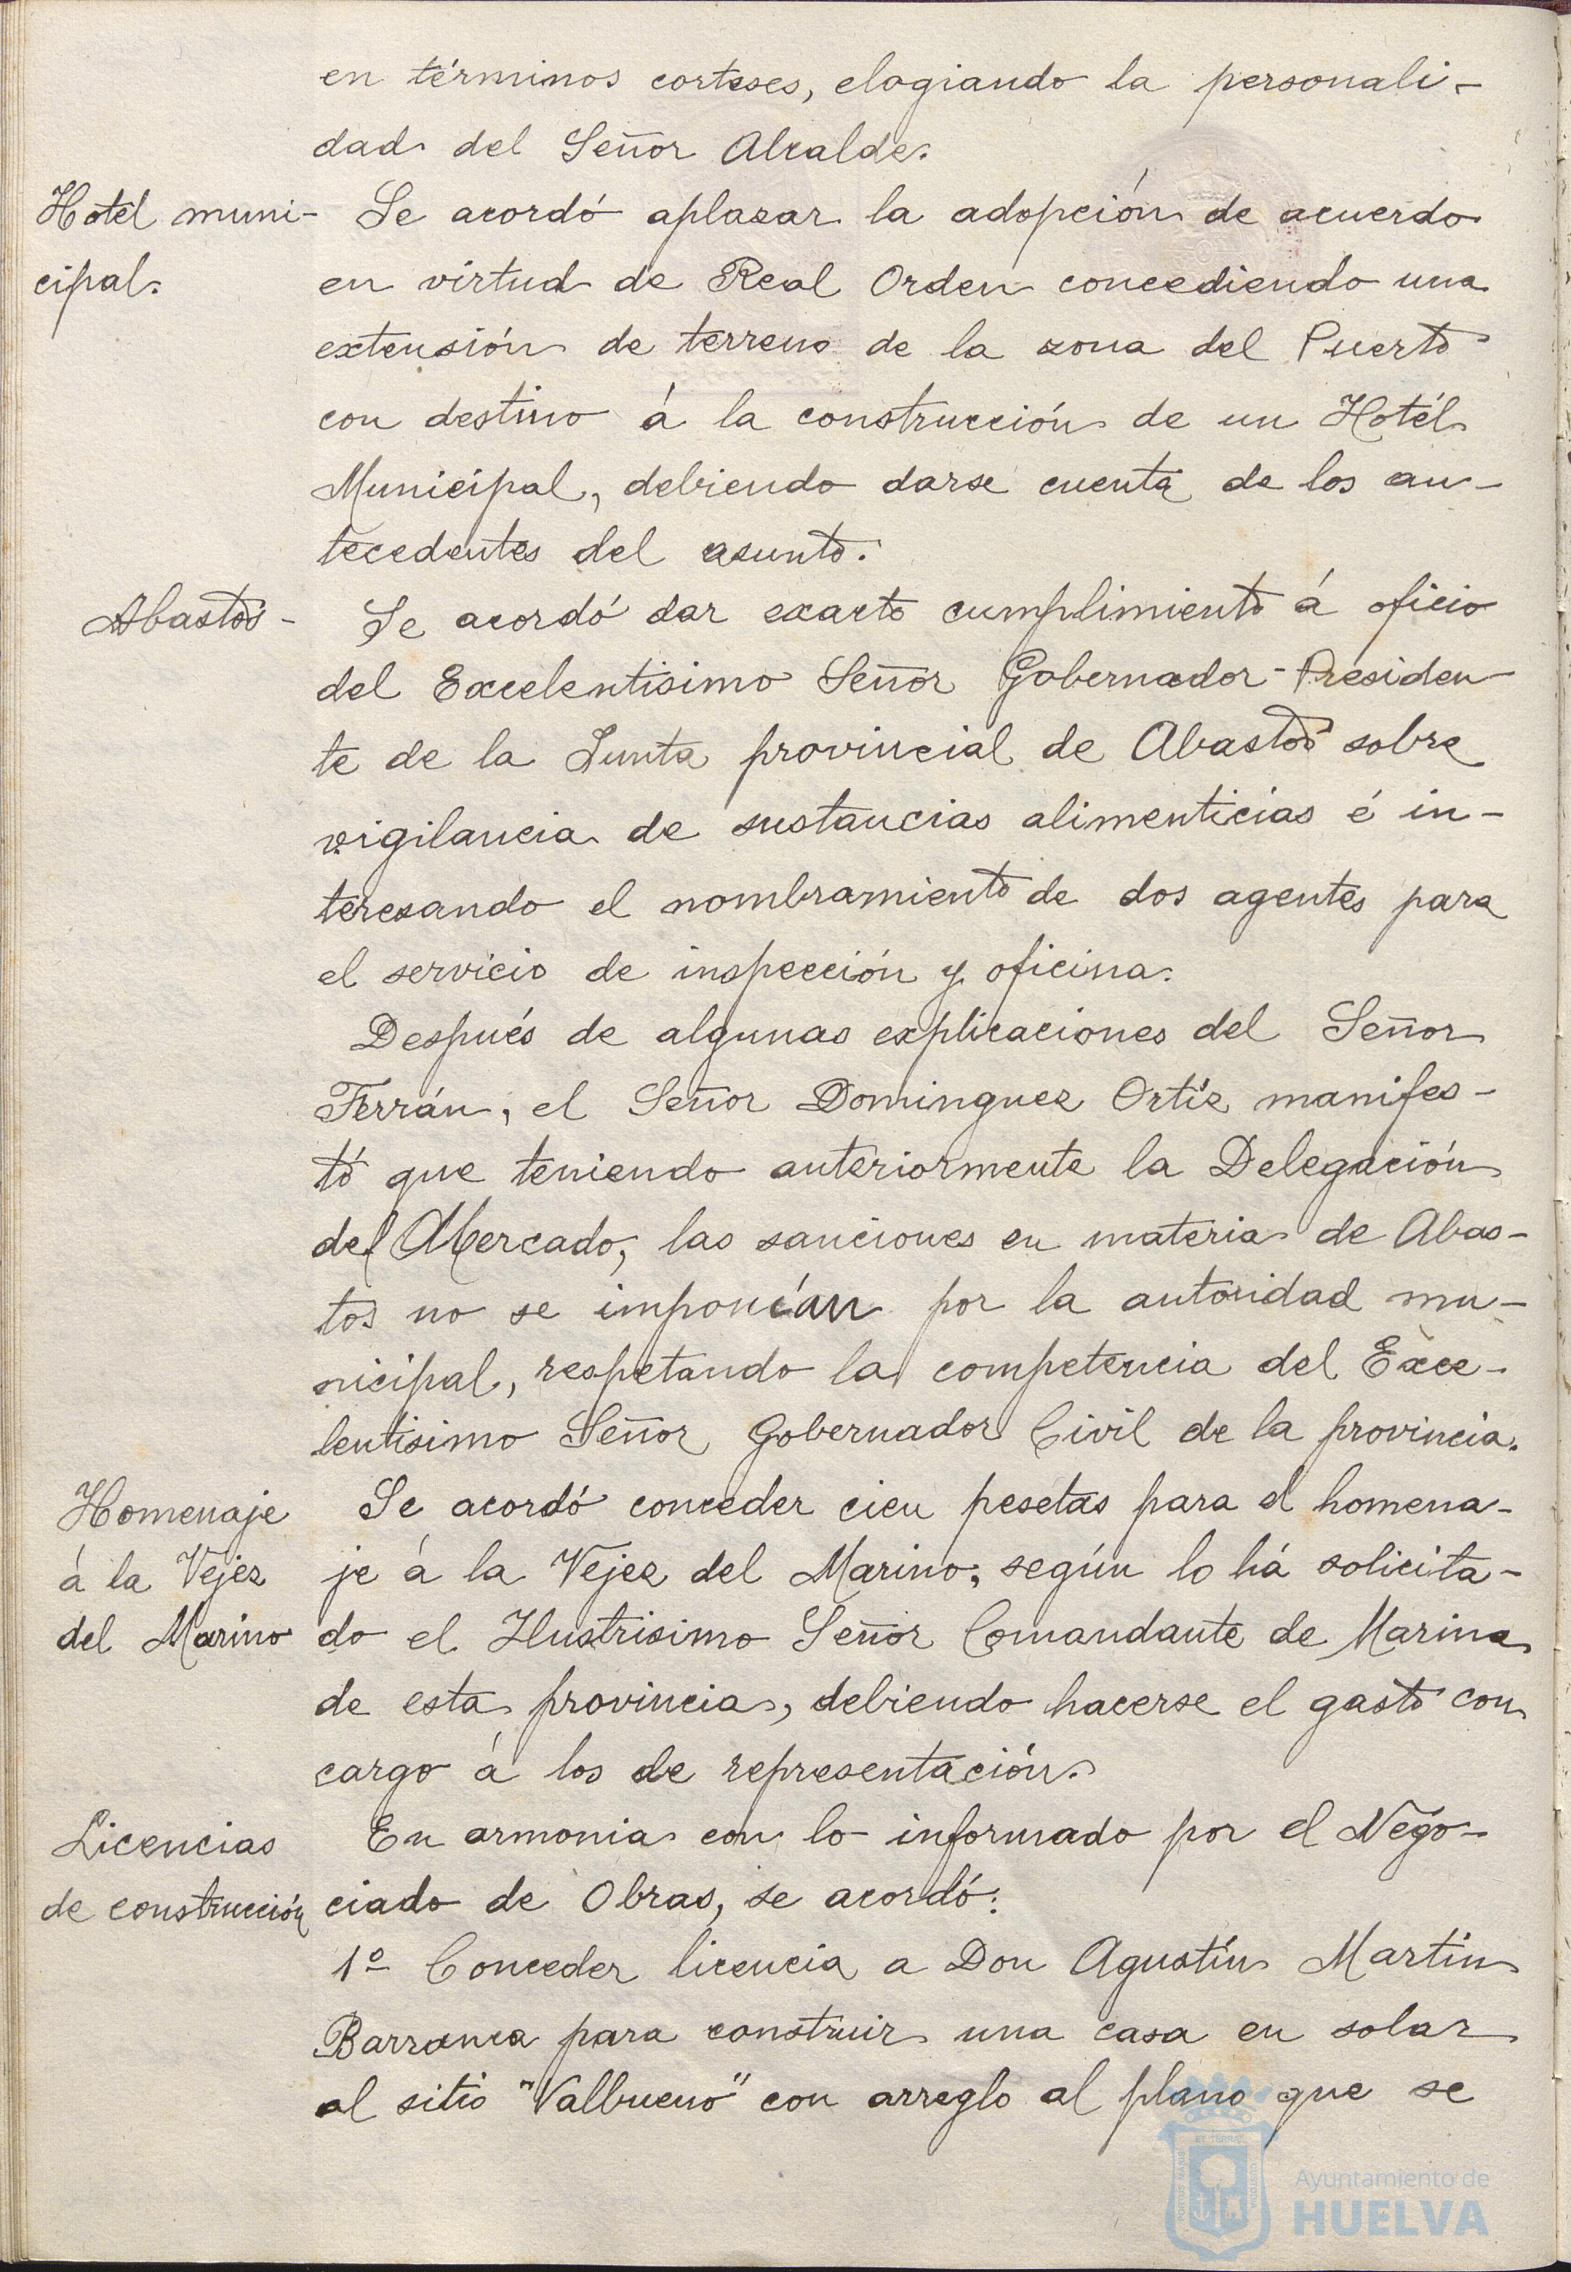 en términos corteses, elogiando la personali-
dad del Señor Alcalde.
Hotél muni-
cipal.
Se acordó aplazar la adopción de acuerdo
en virtud de Real Orden concediendo una
extensión de terreno de la zona del Puerto
con destino á la construcción de un Hotél
Municipal, debiendo darse cuenta de los an-
tecedentes del asunto.
Abastos-
Se acordó dar exacto cumplimiento á oficio
del Excelentisimo Señor Gobernador-Presiden-
te de la Junta provincial de Abastos sobre
vigilancia de sustancias alimenticias é in-
teresando el nombramiento de dos agentes para
el servicio de inspección y oficina.
Después de algunas explicaciones del Señor
Terrán, el Señor Dominguez Ortíz manifes-
tó que teniendo anteriormente la Delegación
del Mercado, las sanciones en materia de Abas-
tos no se imponían por la autoridad mu-
nicipal, respetando la competencia del Exce-
lentisimo Señor Gobernador Civil de la provincia.
Homenaje
á la Vejez
del Marino
Se acordó conceder cien pesetas para el homena-
je á la Vejez del Marino, según lo há solicita-
do el Ilustrisimo Señor Comandante de Marina
de esta provincia, debiendo hacerse el gasto con
cargo á los de representación.
Licencias
de construcción
En armonia con lo informado por el Nego-
ciado de Obras, se acordó:
1º Conceder licencia a Don Agustín Martín
Barranca para construir una casa en solar
al sitio "Valbueno" con arreglo al plano que se
Ayuntamiento de
HUELVA